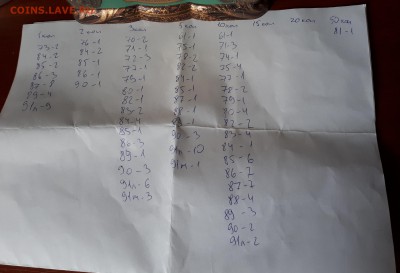 COINS.LAVE.RU
1 коп 2 коп 3 коп 5 коп 10 коп 15 коп 20 коп 50 коп
73-2
84-2
85-2
86-3
87-8
89-4
91л-9
76-1
84-2
85-1
86-1
90-1
70-2
71-1
72-3
77-1
79-1
80-1
82-1
83-2
84-4
85-1
86-3
89-1
90-3
91л-6
91м-3
61-1
78-2
82-2
87-1
88-1
90-3
91л-10
91м-1
61-1
74-3
75-4
77-1
78-2
79-1
80-4
82-2
83-4
84-1
85-6
86-7
87-7
88-4
89-3
90-2
91л-2
81-1